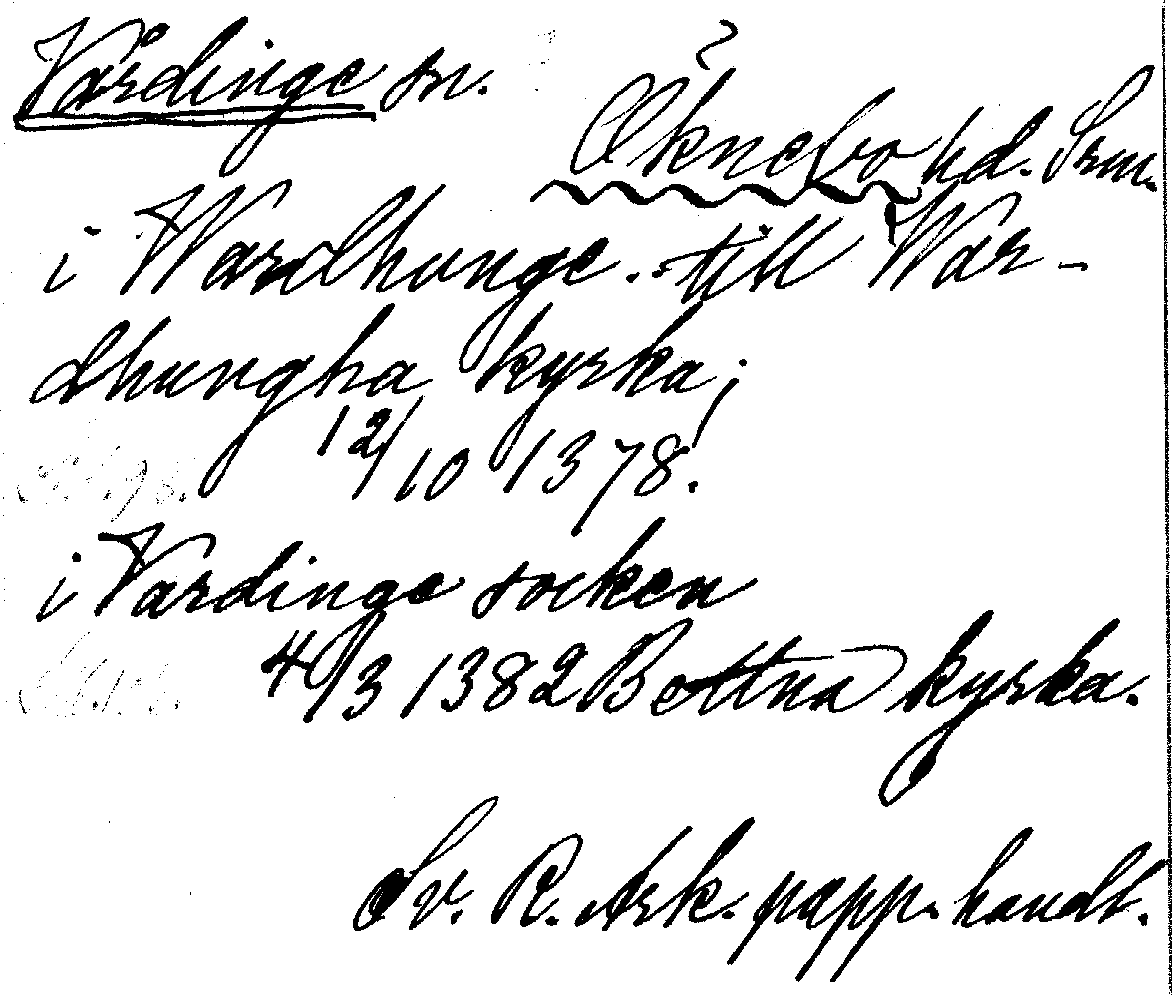 Vårdinge sn.
Öknebo hd. Srm.
i Wardhunge. till War-
dhungha kyrka;
12/10 1378.
i Vardinge socken
4/3 1382 Bettna kyrka.
Sv. R. Ark. papp. handl.